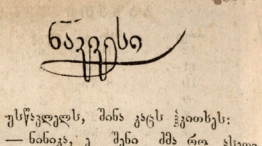 ნაკვესი
უსწავლელს, შინა კაცს ჰკითხეს:
— ნინიკა, ე შენი ძმა რო ასეთი